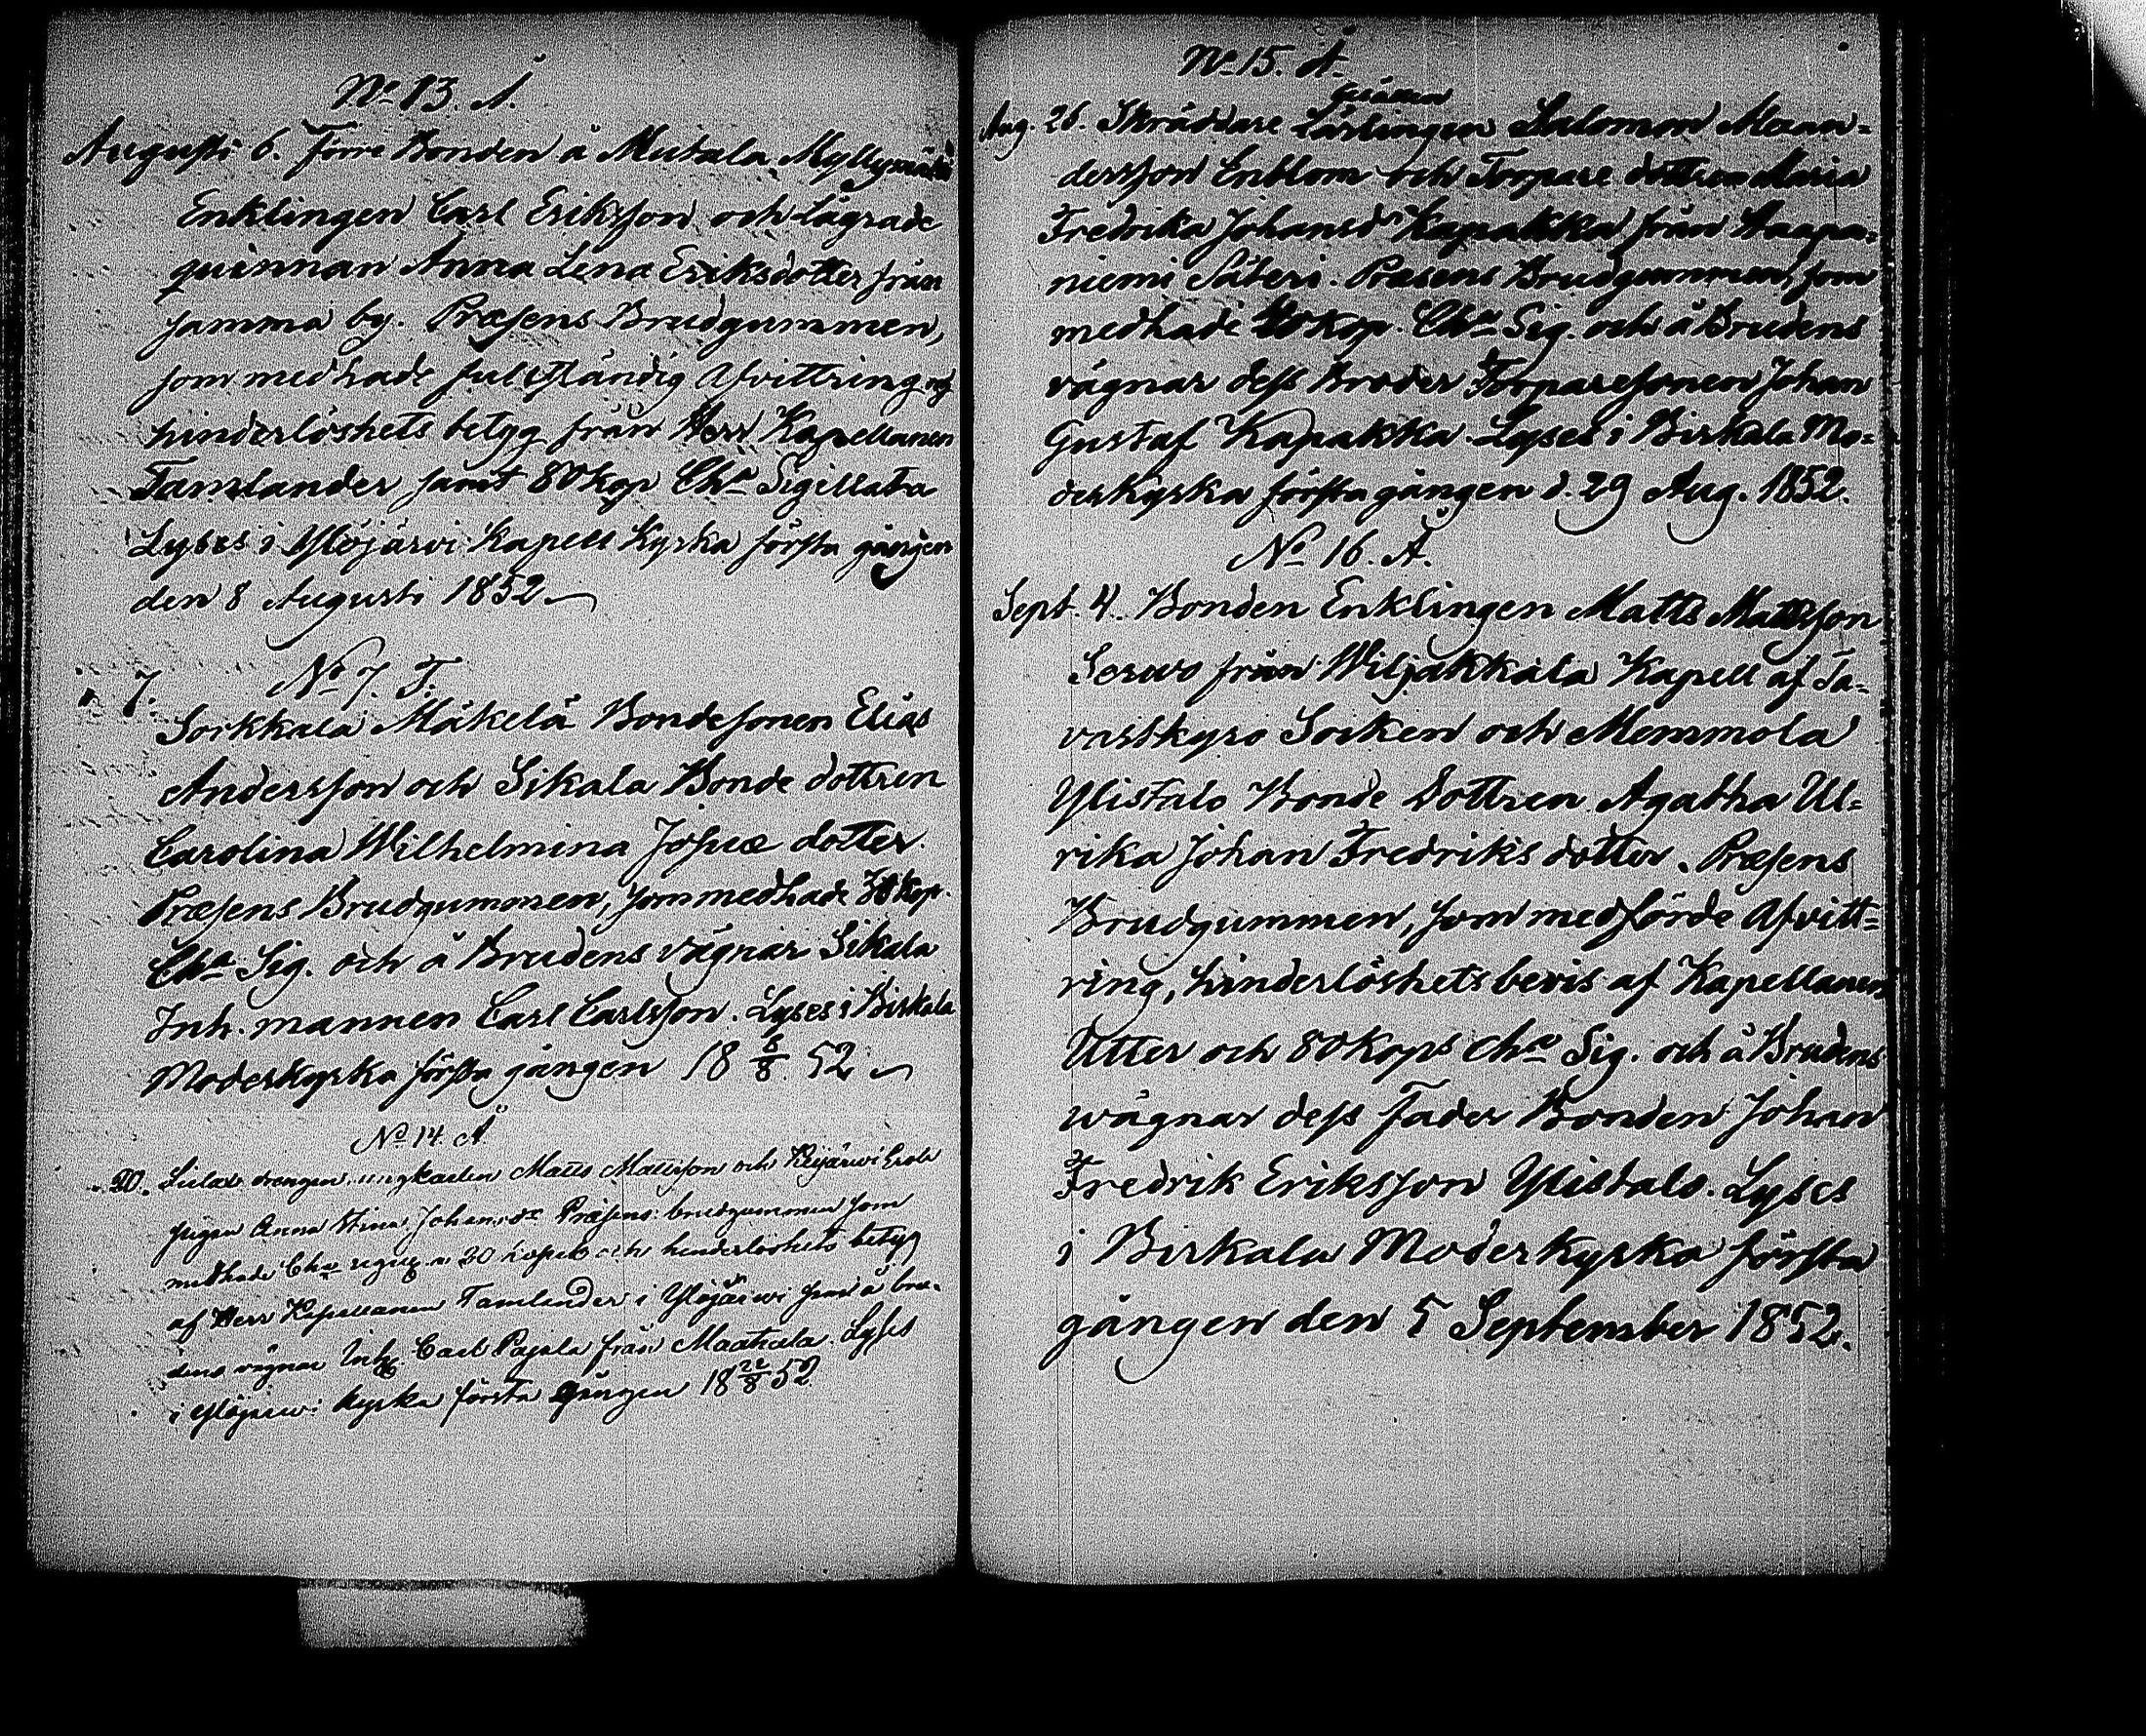 No 13. Å.
Augusti 6. Förre Bonden å Mutala Myllymäki
Enklingen Carl Eriksson och Lägrade
quinnan Anna Lena Eriksdotter från
samma by. Præsens Brudgummen,
som medhade fullständig Afvittring och
hinderlöshets betyg från Herr Kapellanen
Tamlander samt 80 kop Cha Sigillata
Lyses i Ylöjärvi Kapell Kyrka första gången
den 8 Augusti 1852
No 7. F.
" 7.
Sorkkala Mäkelä Bondesonen Elias
Andersson och Sikala Bonde dottren
Carolina Wilhelmina Josuæ dotter.
Præsens Brudgummen, som medhade 30 kop.
Cha Sig. och å Brudens vägnar Sikala
Inh. mannen Carl Carlsson. Lyses i Birkala
Moderkyrka första gången 18 8/8 52
No 14. Å
" 20. drengen ungkarlen Matts Mattsson och Keijärvi
pigan Anna Stina Johansdr Præsens brudgummen som
medhade Cha sigill. a 20 kopek och hinderlöshets betyg
af Herr Kapellanen Tamlander i Ylöjärvi samt å bru-
dens vägnar Inh. Carl Pajala från Maatiala. Lyses
i Ylöjärvi kyrka första gången 18 22/8 52
No 15. Å.
Gesällen
Aug. 26. Skräddare Lärlingen Salomon Alexan=
dersson Enblom och Torpare dottren Maria
Fredrika Johansdr Kapakka från Haapa=
niemi Säteri. Præsens Brudgummen, som
medhade kop. Cha Sig. och å Brudens
vägnar dess Broder Torparesonen Johan
Gustaf Kapakka. Lyses i Birkala Mo=
derkyrka första gången d. 29 Aug. 1852.
No 16. Å.
Sept. 4. Bonden Enklingen Matts Mattsson
från Wiljakkala Kapell af Ta=
vastkyro Socken och Memmola
Ylistalo Bonde Dottren Agatha Ul=
rika Johan Fredriks dotter. Præsens
Brudgummen, som medförde Afvitt=
ring, hinderlöshets bevis af Kapellanen
Utter och 80 kops chæ Sig. och å Brudens
wägnar dess Fader Bonden Johan
Fredrik Eriksson Ylistalo. Lyses
i Birkala Moderkyrka första
gången den 5 September 1852.